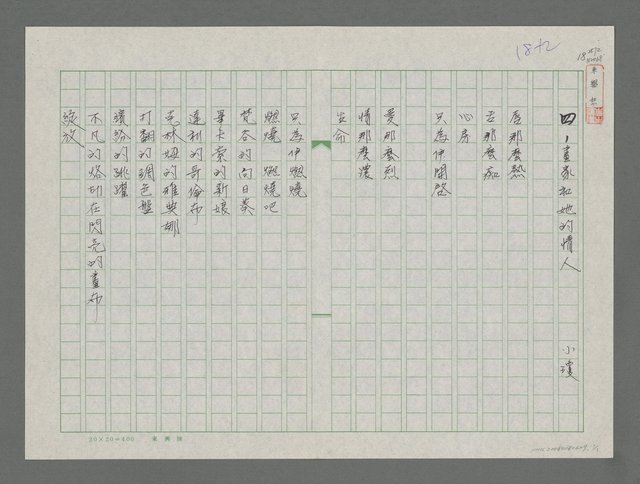 四、畫家和她的情人
小瓊
唇那麼熱
舌那麼痴
心房
只為伊開啓
愛那麼烈
情那麼濃
生命
只為伊燃燒
燃燒 燃燒吧
梵谷的向日葵
畢卡索的新娘
達利的哥倫布
克林姆的雅典娜
打翻的調色盤
繽紛的跳躍
不凡的烙印在閃亮的畫布
綻放
20×20=400
18